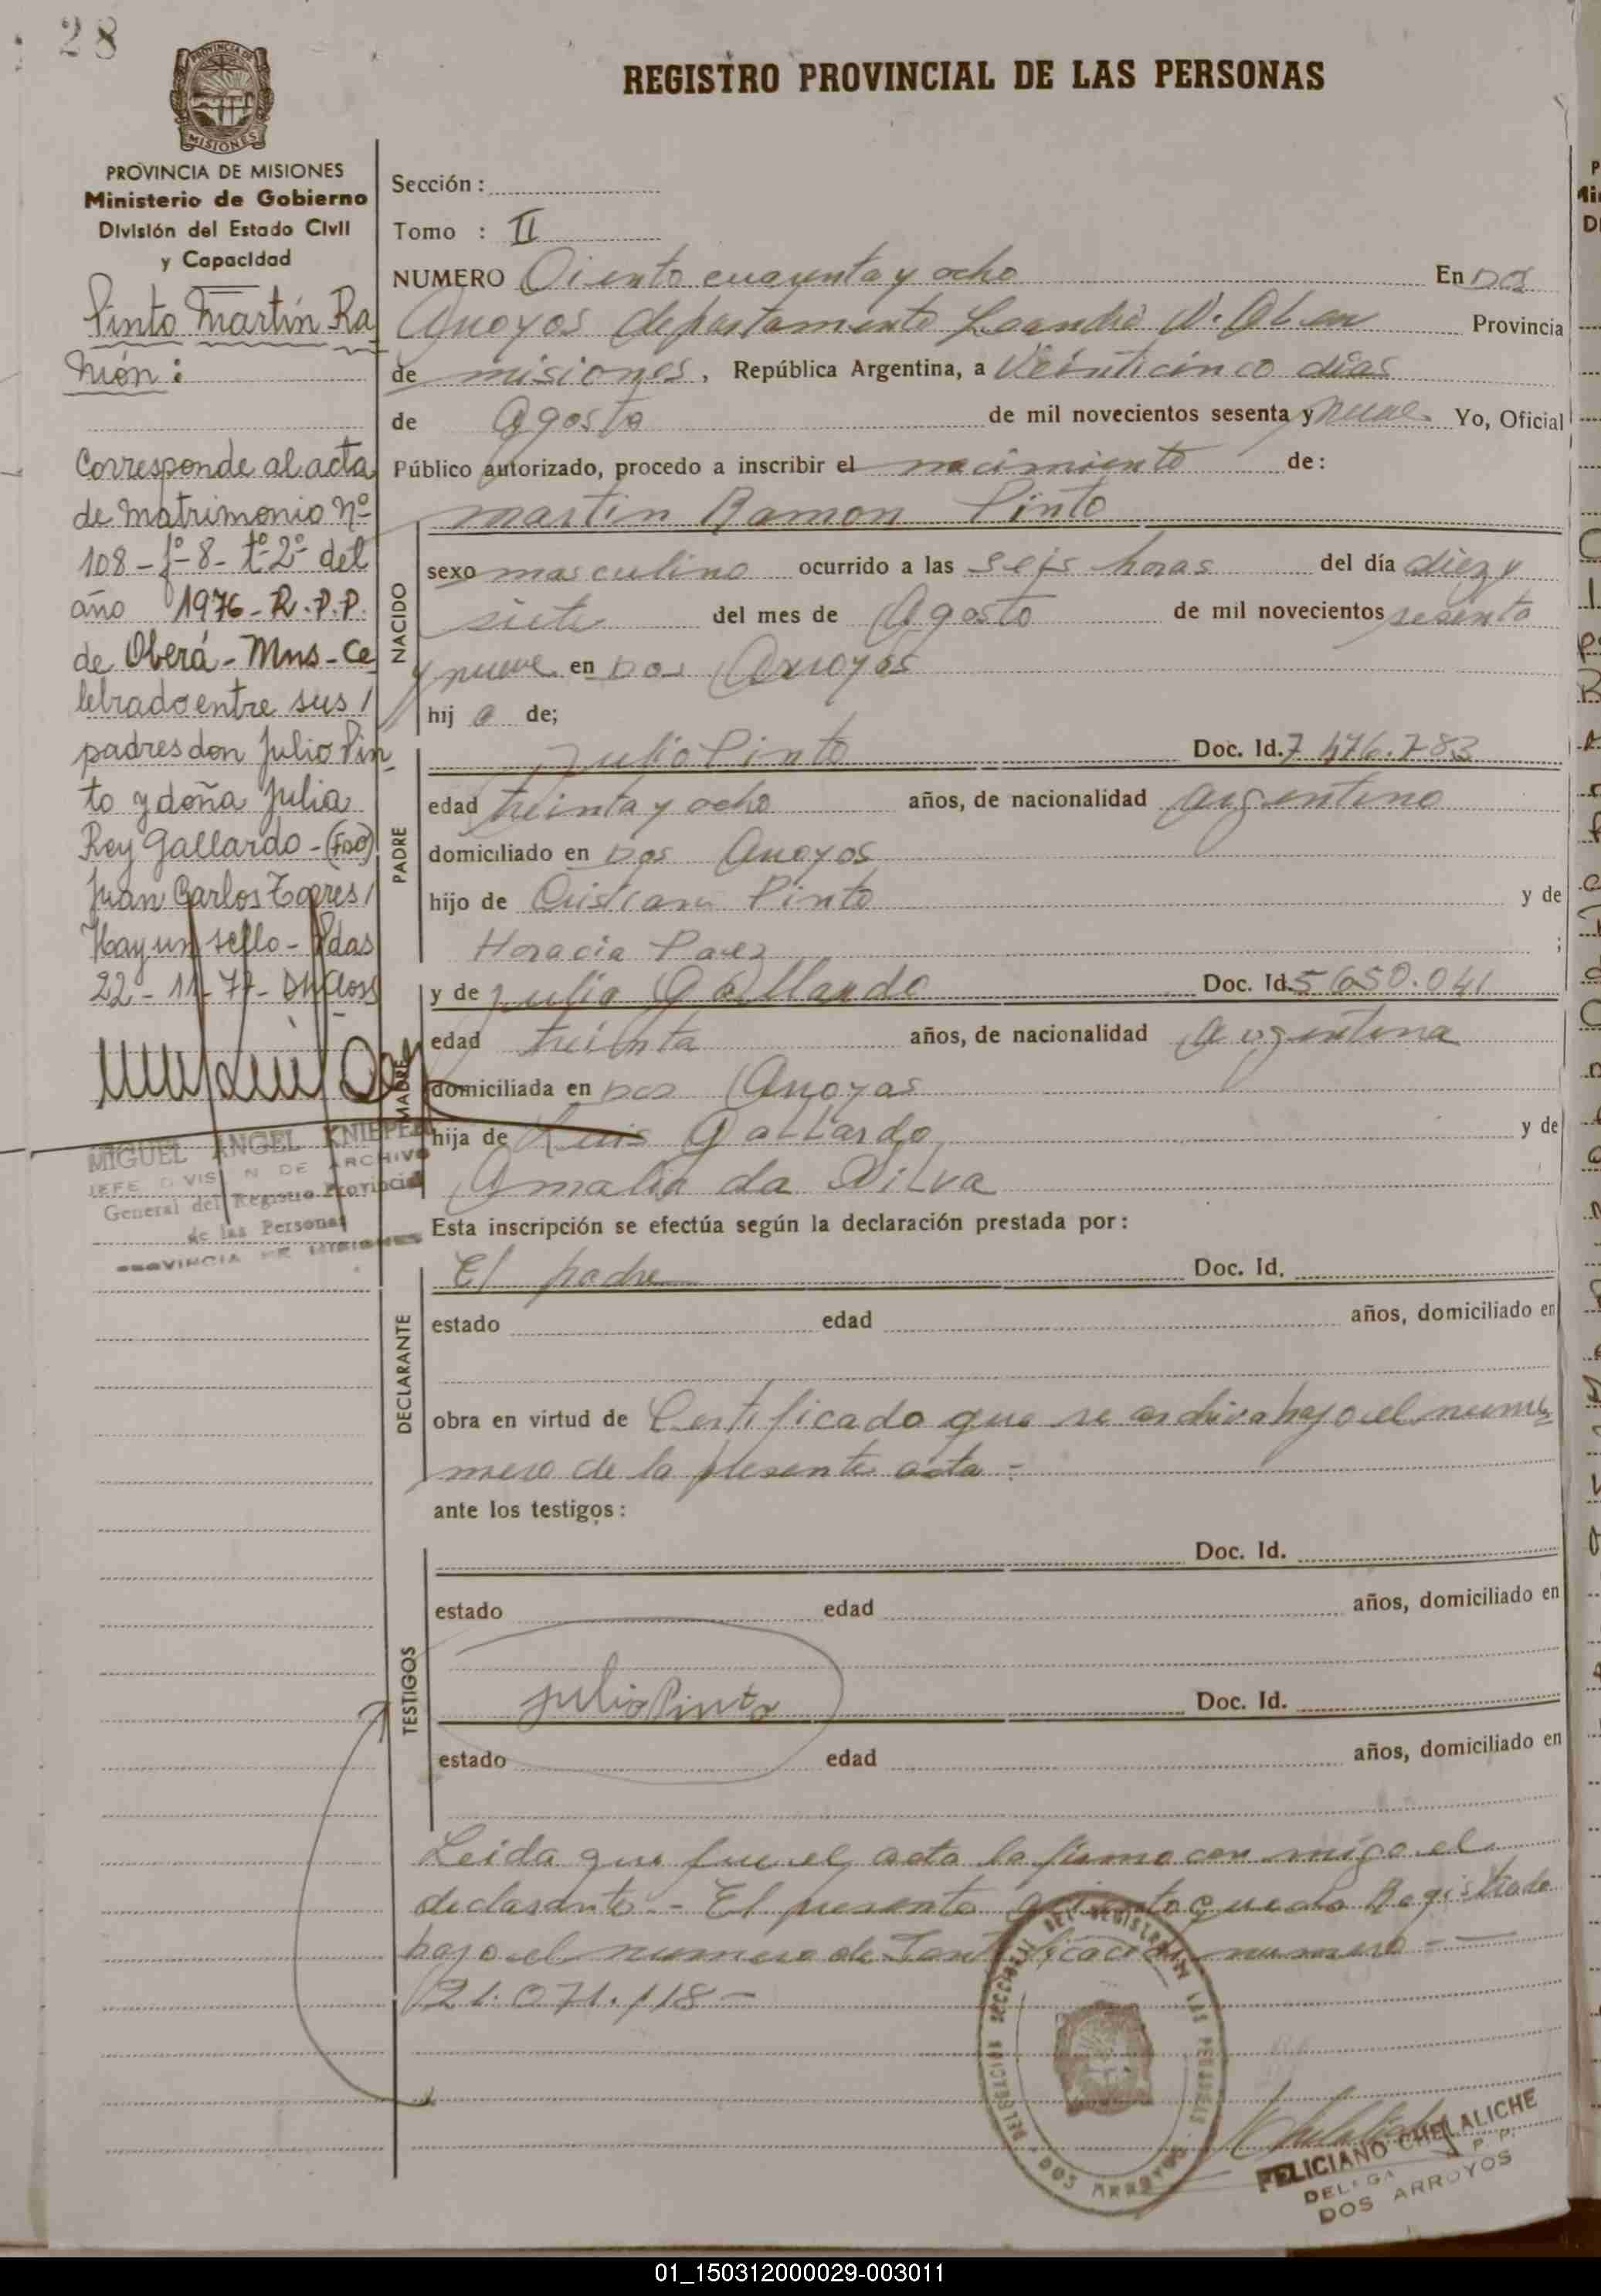 28
PROVINCIA DE
MISIONES
REGISTRO PROVINCIAL DE LAS PERSONAS
PROVINCIA DE MISIONES
Ministerio de Gobierno
División del Estado Civil
y Capacidad
Pinto Martín Ra
món:
Corresponde al acta
de matrimonio Nº
108 - fº 8 - tº 2º del
año 1976 - R.P.P.
de Oberá - Mns - Ce
lebrado entre sus /
padres don Julio Pin
to y doña Julia
Rey Gallardo - (Fdo)
Juan Carlos Torres /
Hay un sello - Pdas
22 - 11 - 77 -
MIGUEL ANGEL KNIEPE
JEFE DIVISION DE ARCHIVO
General del Registro Provincial
de las Personas
PROVINCIA DE MISIONES
Sección :
Tomo : II
NUMERO Ciento cuarenta y ocho En Dos
Arroyos departamento Leandro N. Alem Provincia
de misiones, República Argentina, a Veinticinco dias
de Agosto de mil novecientos sesenta y nueve Yo, Oficial
Público autorizado, procedo a inscribir el nacimiento de:
martin Ramon Pinto
NACIDO
sexo masculino ocurrido a las seis horas del día diez y
siete del mes de Agosto de mil novecientos sesenta
y nueve en Dos Arroyos
hij o de;
PADRE
Julio Pinto Doc. Id. 7.476.783
edad treinta y ocho años, de nacionalidad argentino
domiciliado en Dos Arroyos
hijo de Cristian Pinto y de
Horacia Paez ;
MADRE
y de Julia Gallardo Doc. Id. 5650.041
edad treinta años, de nacionalidad argentina
domiciliada en Dos Arroyos
hija de Luis Gallardo y de
Amalia da Silva
Esta inscripción se efectúa según la declaración prestada por:
DECLARANTE
El padre Doc. Id.
estado edad años, domiciliado en
obra en virtud de Certificado que se archiva bajo el nume
mero de la presente acta -
ante los testigos:
TESTIGOS
Doc. Id.
estado edad años, domiciliado en
Julio Pinto Doc. Id.
estado edad años, domiciliado en
Leida que fue el acta la firma con migo el
declarante - El presente queda Registrado
bajo el numero de numero - -
21.071.118 -
DOS ARROYOS
FELICIANO CHELALICHE
DOS ARROYOS
01_150312000029-003011